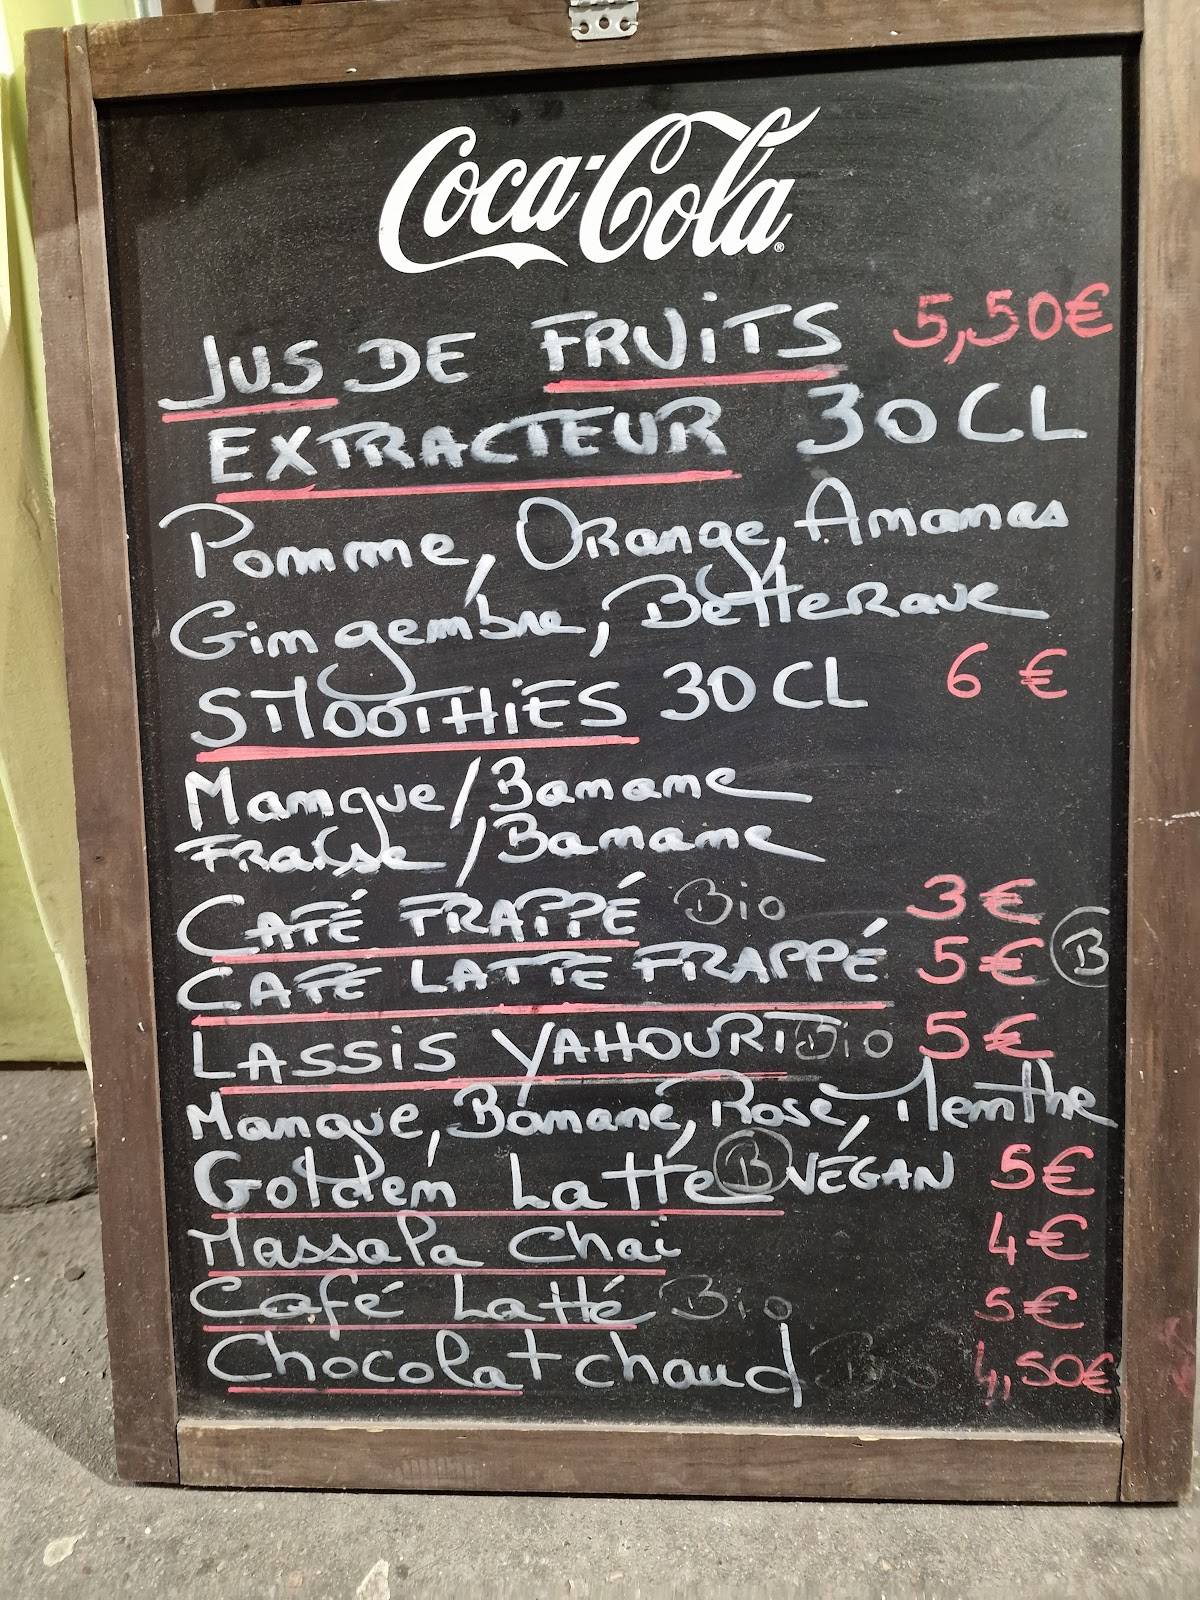 Coca-Cola
JUS DE FRUITS 5,50€
EXTRACTEUR 30CL
Pomme, Orange, Ananas
Gingembre, Betterave
SMOOTHIES 30CL 6 €
Mangue/Banane
Fraise/Banane
CAFÉ FRAPPÉ Bio 3€
CAFE LATTE FRAPPÉ 5€ B
LASSIS YAHOURT Bio 5€
Mangue, Banane, Rose, Menthe
Golden Latté B VÉGAN 5€
Massala Chaï 4€
Café Latté Bio 5€
Chocolat chaud Bio 4,50€